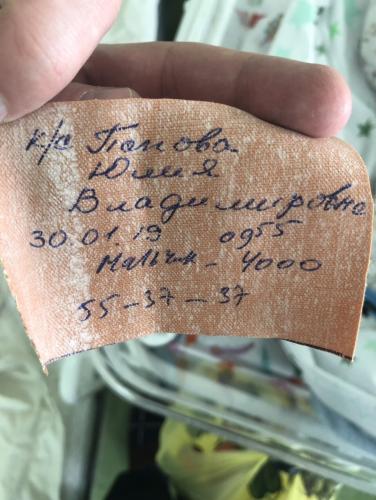 к/с Попова
Юлия
Владимировна
30.01.19 09⁵⁵
Мальчик - 4000
55-37-37